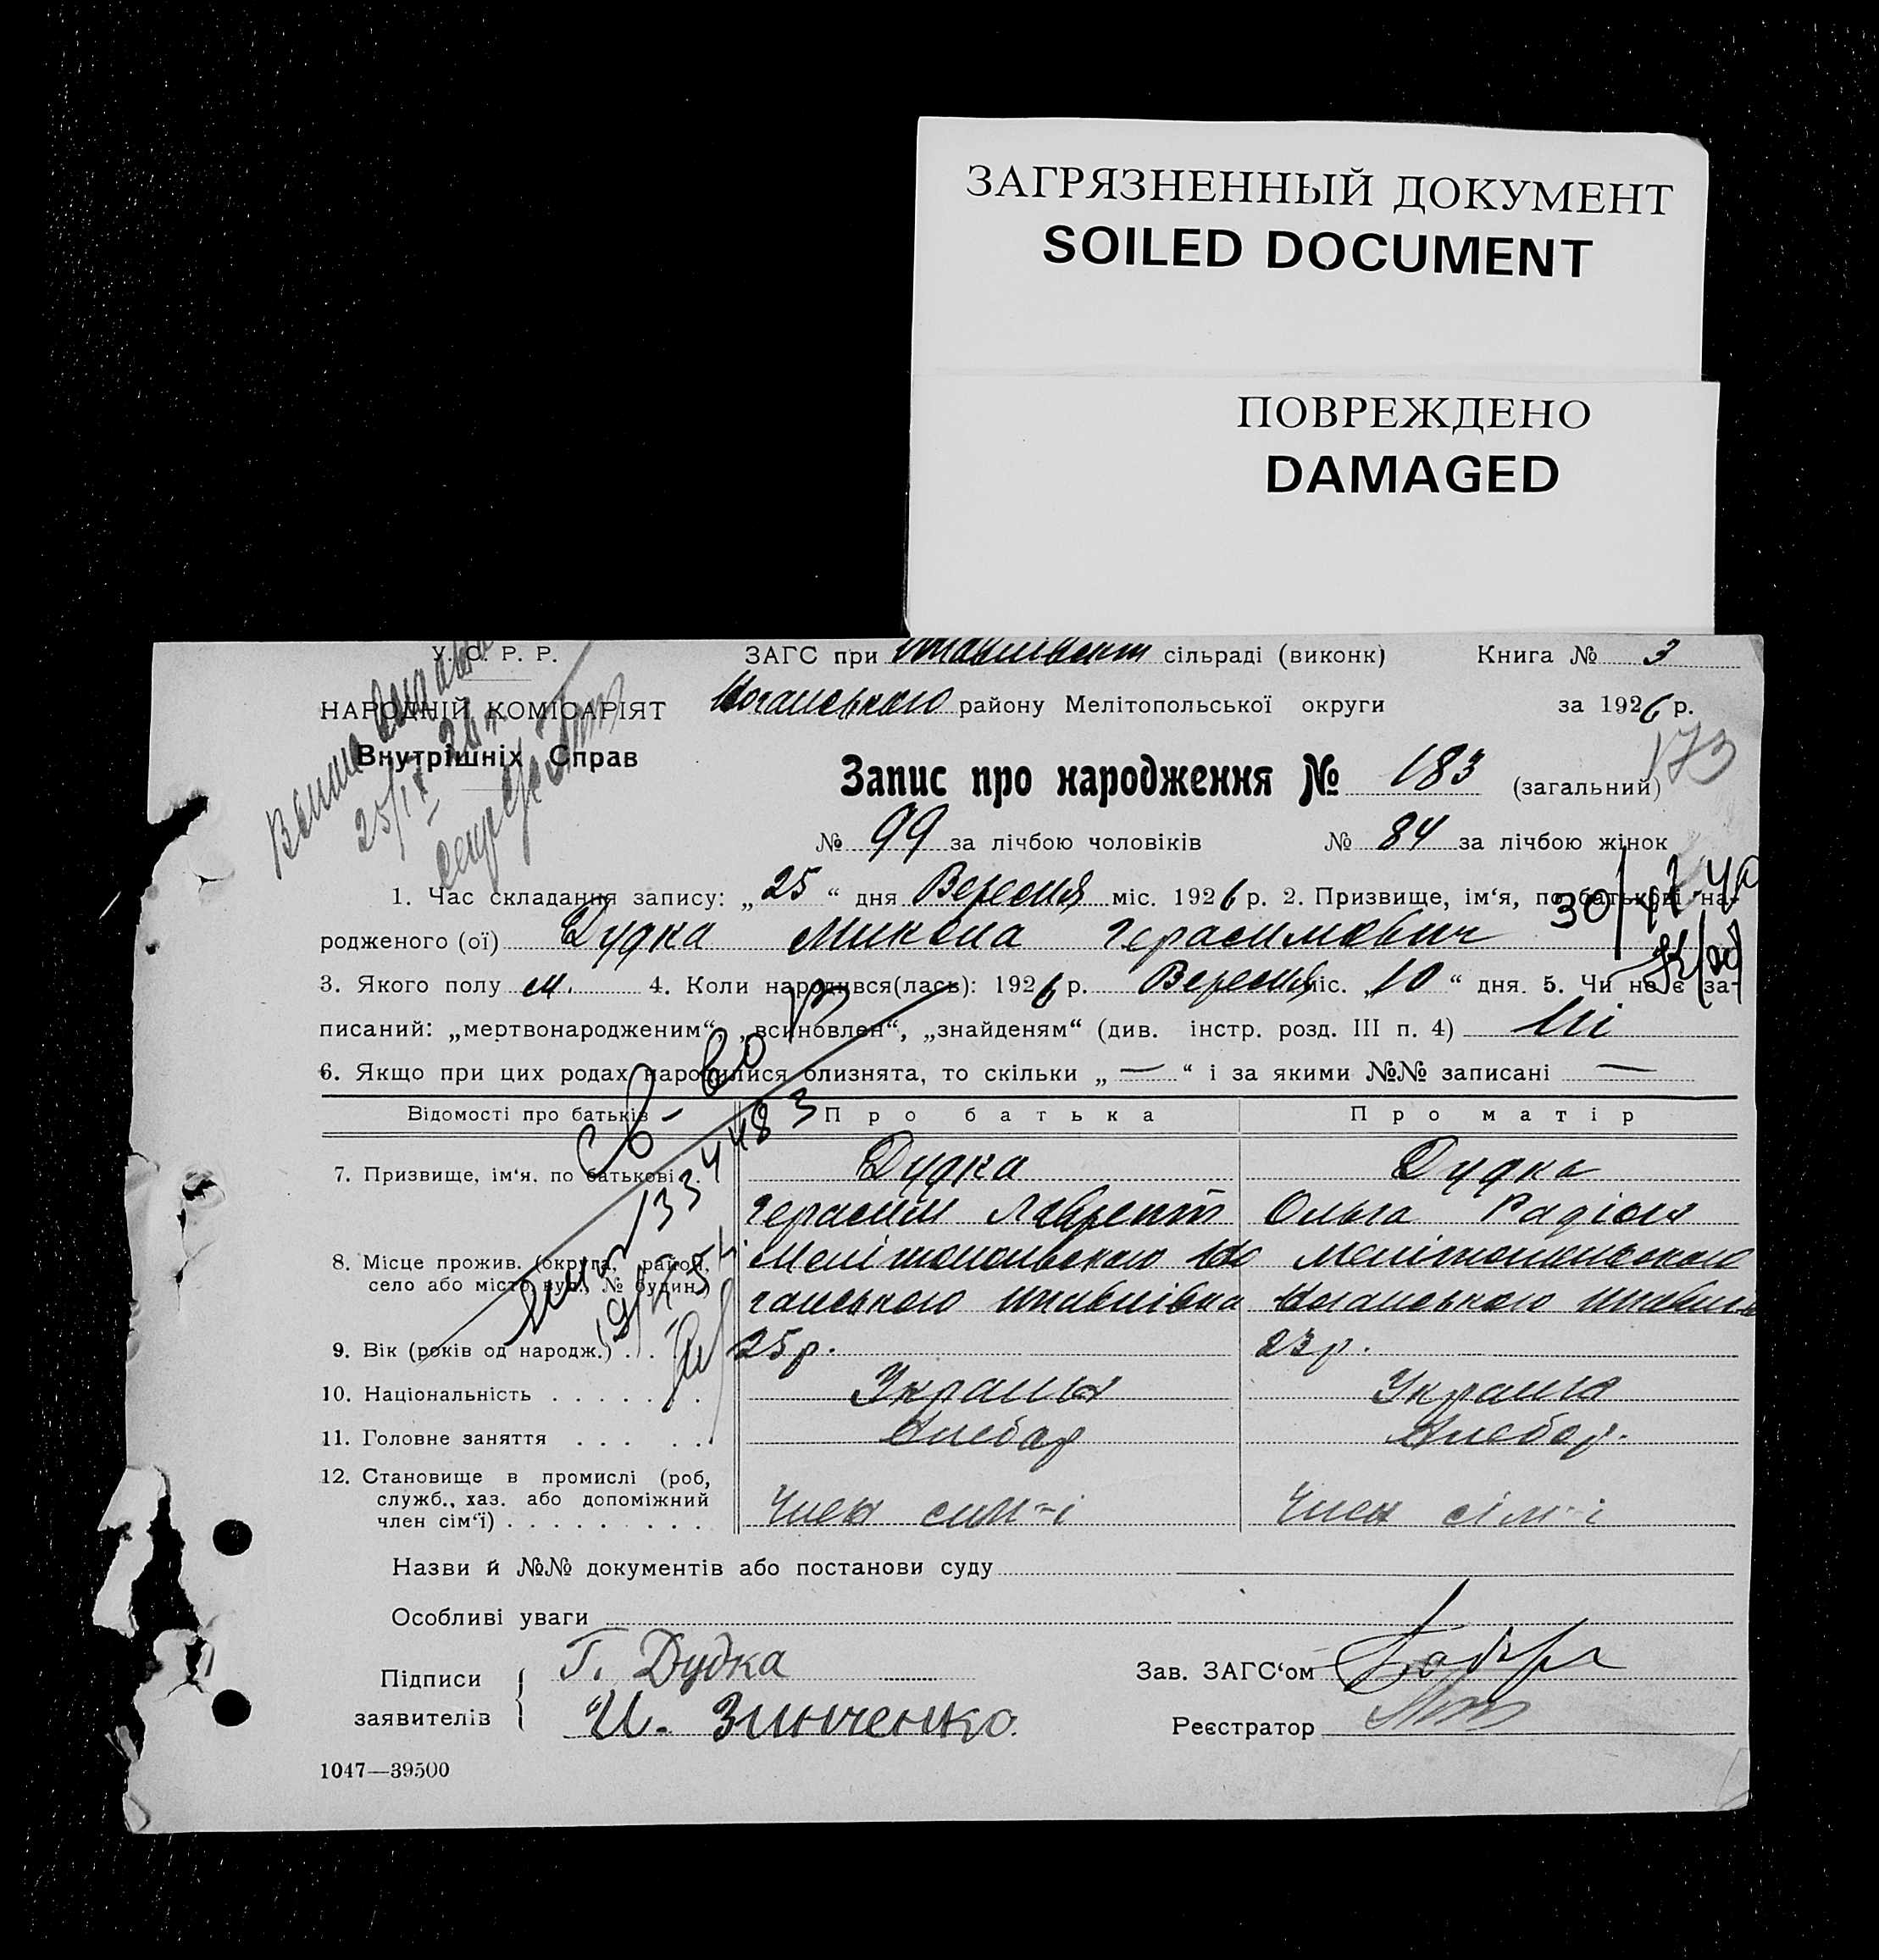 ЗАГРЯЗНЕННЫЙ ДОКУМЕНТ
SOILED DOCUMENT
ПОВРЕЖДЕНО
DAMAGED
У. С. Р. Р.
НАРОДНІЙ КОМІСАРІЯТ
Внутрішніх Справ
ЗАГС при сільраді (виконк) Книга № 3
району Мелітопольської округи за 1926 р.
173
Запис про народження № 183 (загальний)
№ 99 за лічбою чоловіків № 84 за лічбою жінок
1. Час складання запису: „25“ дня Вересня міс. 1926 р. 2. Призвище, ім‘я, по батькові на-
родженого (ої) Дудка Микола Герасимович
3. Якого полу м. 4. Коли народився(лась): 1926 р. Вересня міс. „10“ дня. 5. Чи не є за-
писаний: „мертвонародженим“, „всиновлен“, „знайденям“ (див. інстр. розд. III п. 4) Ні
6. Якщо при цих родах народилися близнята, то скільки „—“ і за якими №№ записані —
Відомості про батьків Про батька Про матір
7. Призвище, ім‘я, по батькові Дудка Дудка
Герасим Лаврент Ольга Радіон
8. Місце прожив. (округа, район, Мелітопольського Мелітопольського
село або місто, вул., № будин.)
9. Вік (років од народж.) . . . 25 р. 23 р.
10. Національність . . . . . . . Україн Україн
11. Головне заняття . . . . . Хлебор Хлебор.
12. Становище в промислі (роб,
служб., хаз. або допоміжний
член сім‘ї) . . . . . . . . . Член сим-і Член сім-і
Назви й №№ документів або постанови суду
Особливі уваги
Підписи Г. Дудка Зав. ЗАГС‘ом
заявителів И. Зинченко. Реєстратор
1047—39500